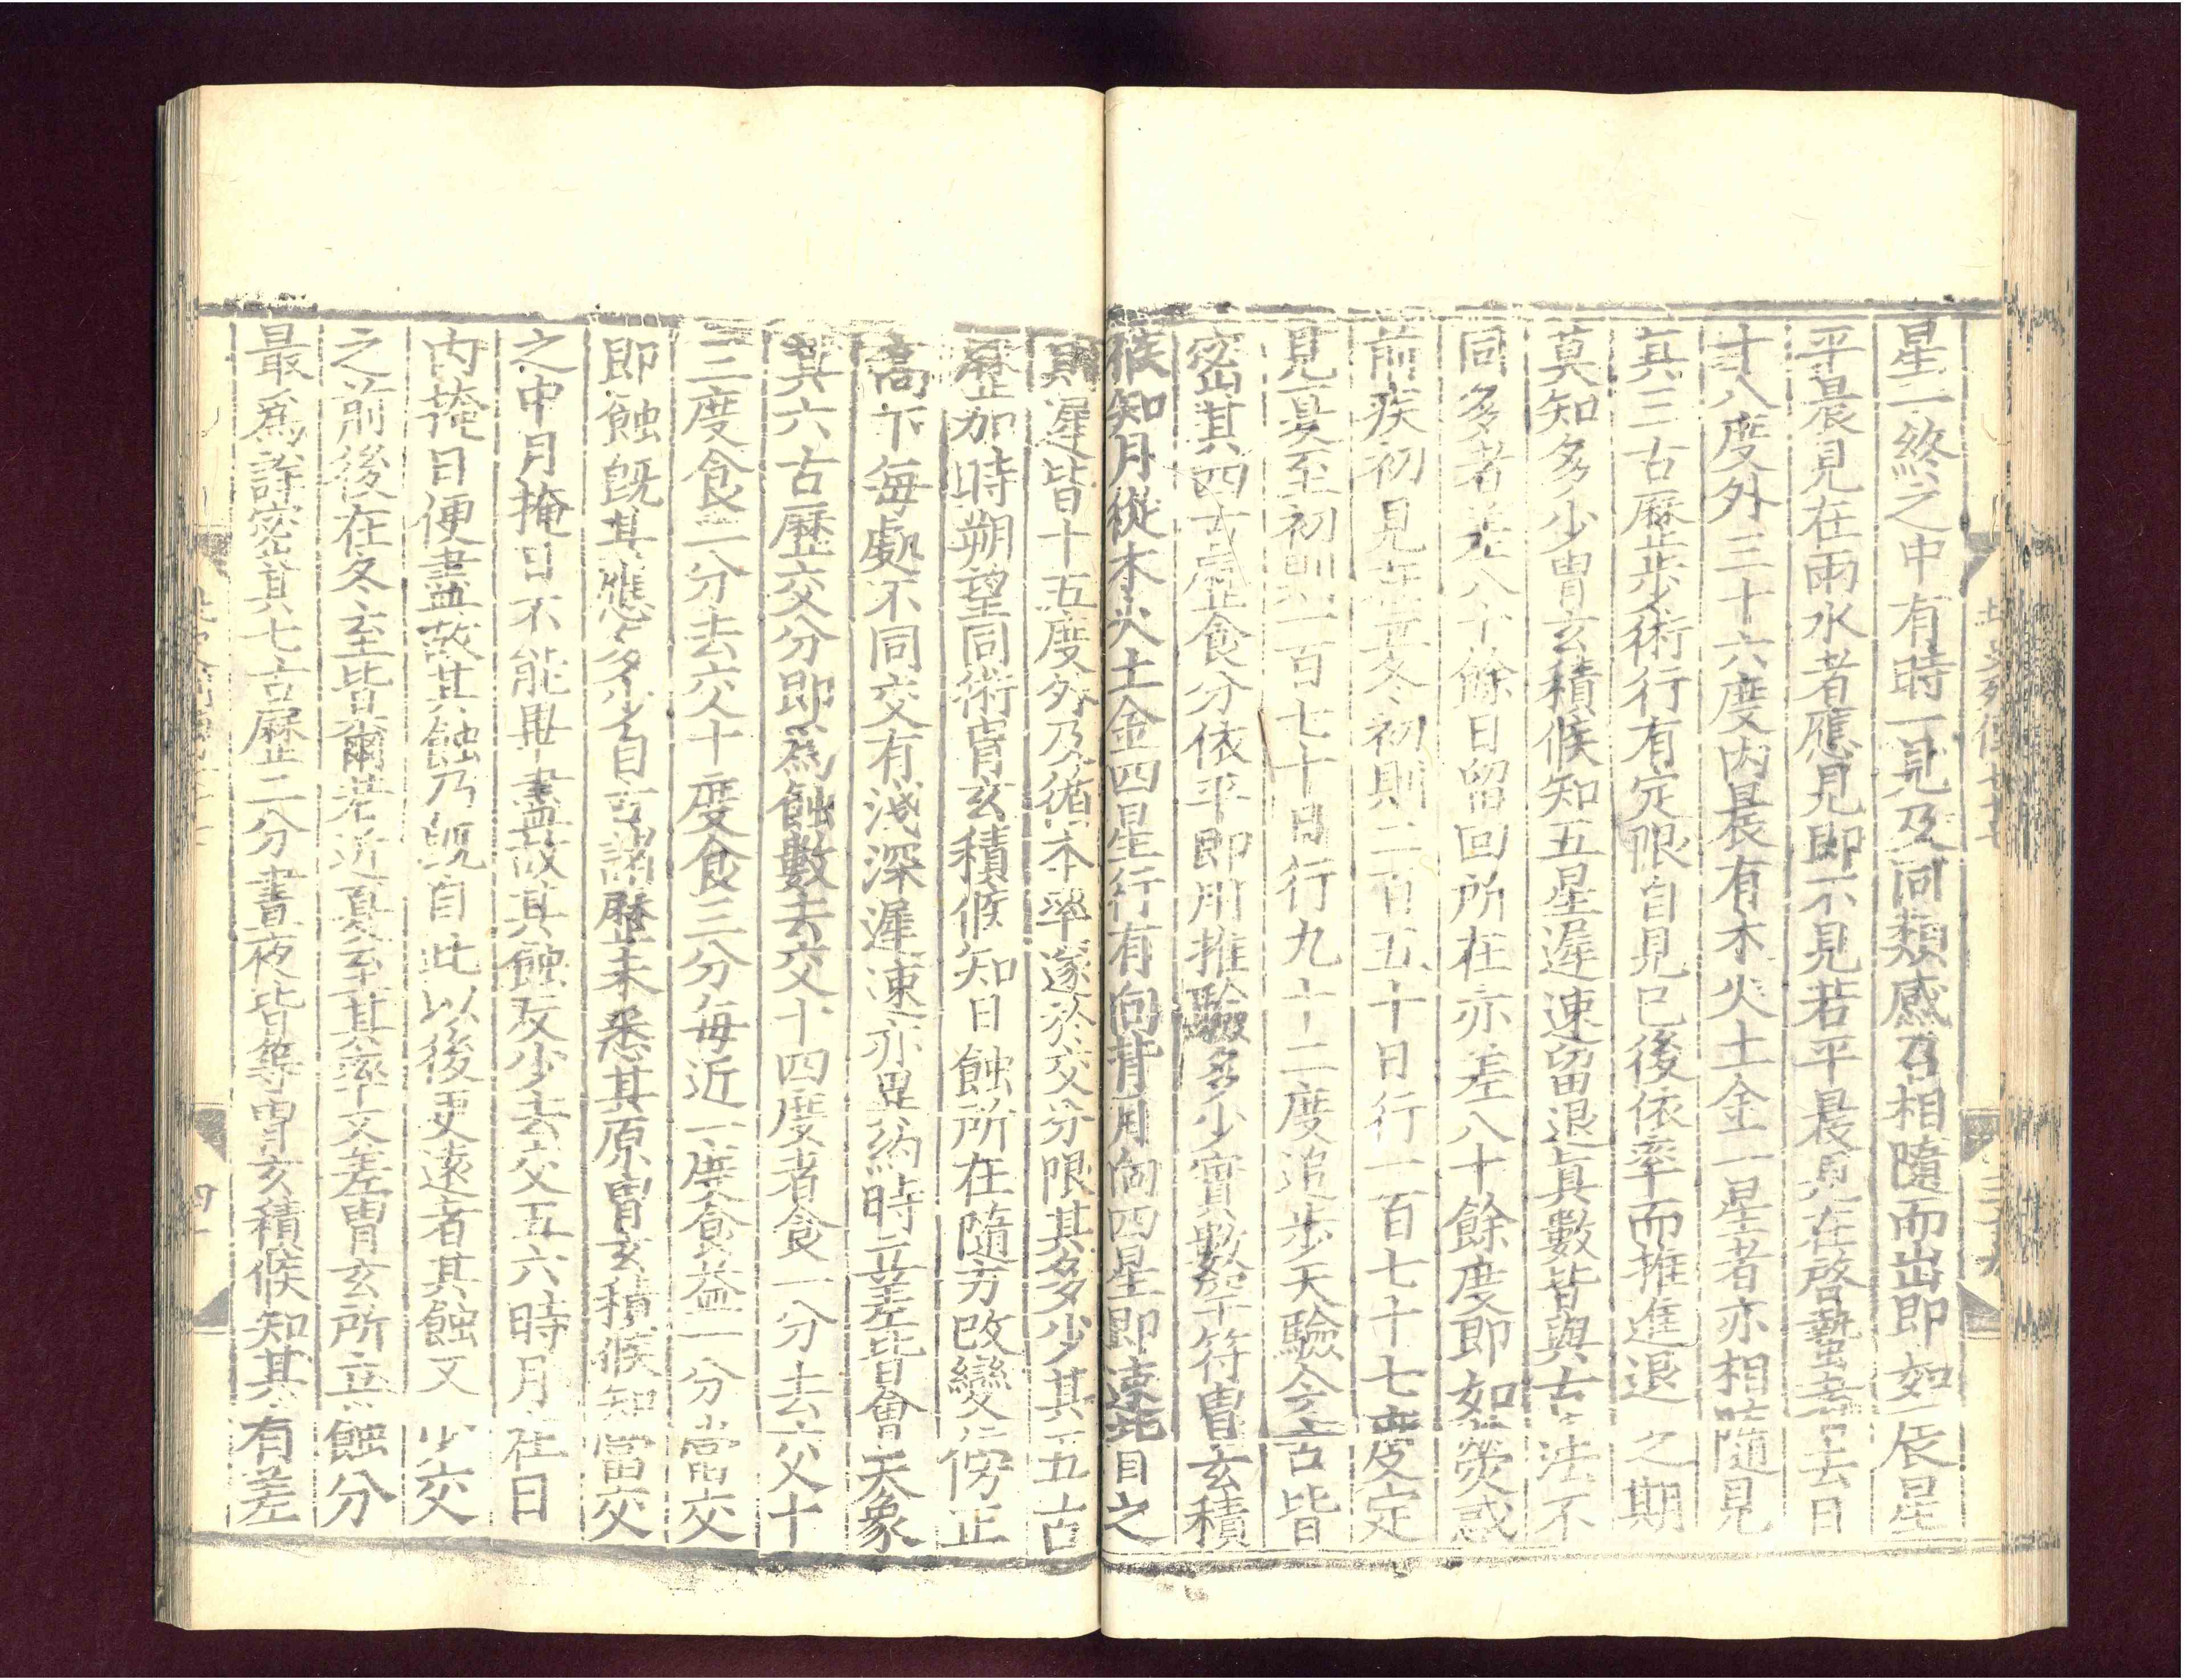 星一終之中有時一見及同類感召相隨而出即如辰星
平晨見在雨水者應見即不見若平晨見在啓蟄者去日
十八度外三十六度内晨有木火土金一星者亦相隨見
其三古曆步術行有定限自見已後依率而推進退之期
莫知多少胄玄積候知五星遲速留退真數皆與古法不
同多者差八十餘日留回所在亦差八十餘度即如熒惑
前疾初見在立冬初則二百五十日行一百七十七度定
見夏至初則一百七十日行九十二度追步天驗今古皆
密其四古曆食分依平即用推驗多少實數罕符胄玄積
候知月從木火土金四星行有向背月向四星即速背之
則遲皆十五度外乃循本率遂於交分限其多少其五古
曆加時朔望同術胄玄積候知日蝕所在隨方改變傍正
高下每處不同交有淺深遲速亦異約時立差皆會天象
其六古曆交分即爲蝕數去交十四度者食一分去交十
三度食二分去交十度食三分每近一度食益一分當交
即蝕既其應多少自古諸曆未悉其原胄玄積候知當交
之中月掩日不能畢盡故其蝕反少去交五六時月在日
内掩日便盡故其蝕乃既自此以後更遠者其蝕又少交
之前後在冬至皆爾若近夏至其率又差胄玄所立蝕分
最爲詳密其七古曆二分晝夜皆等胄玄積候知其有差